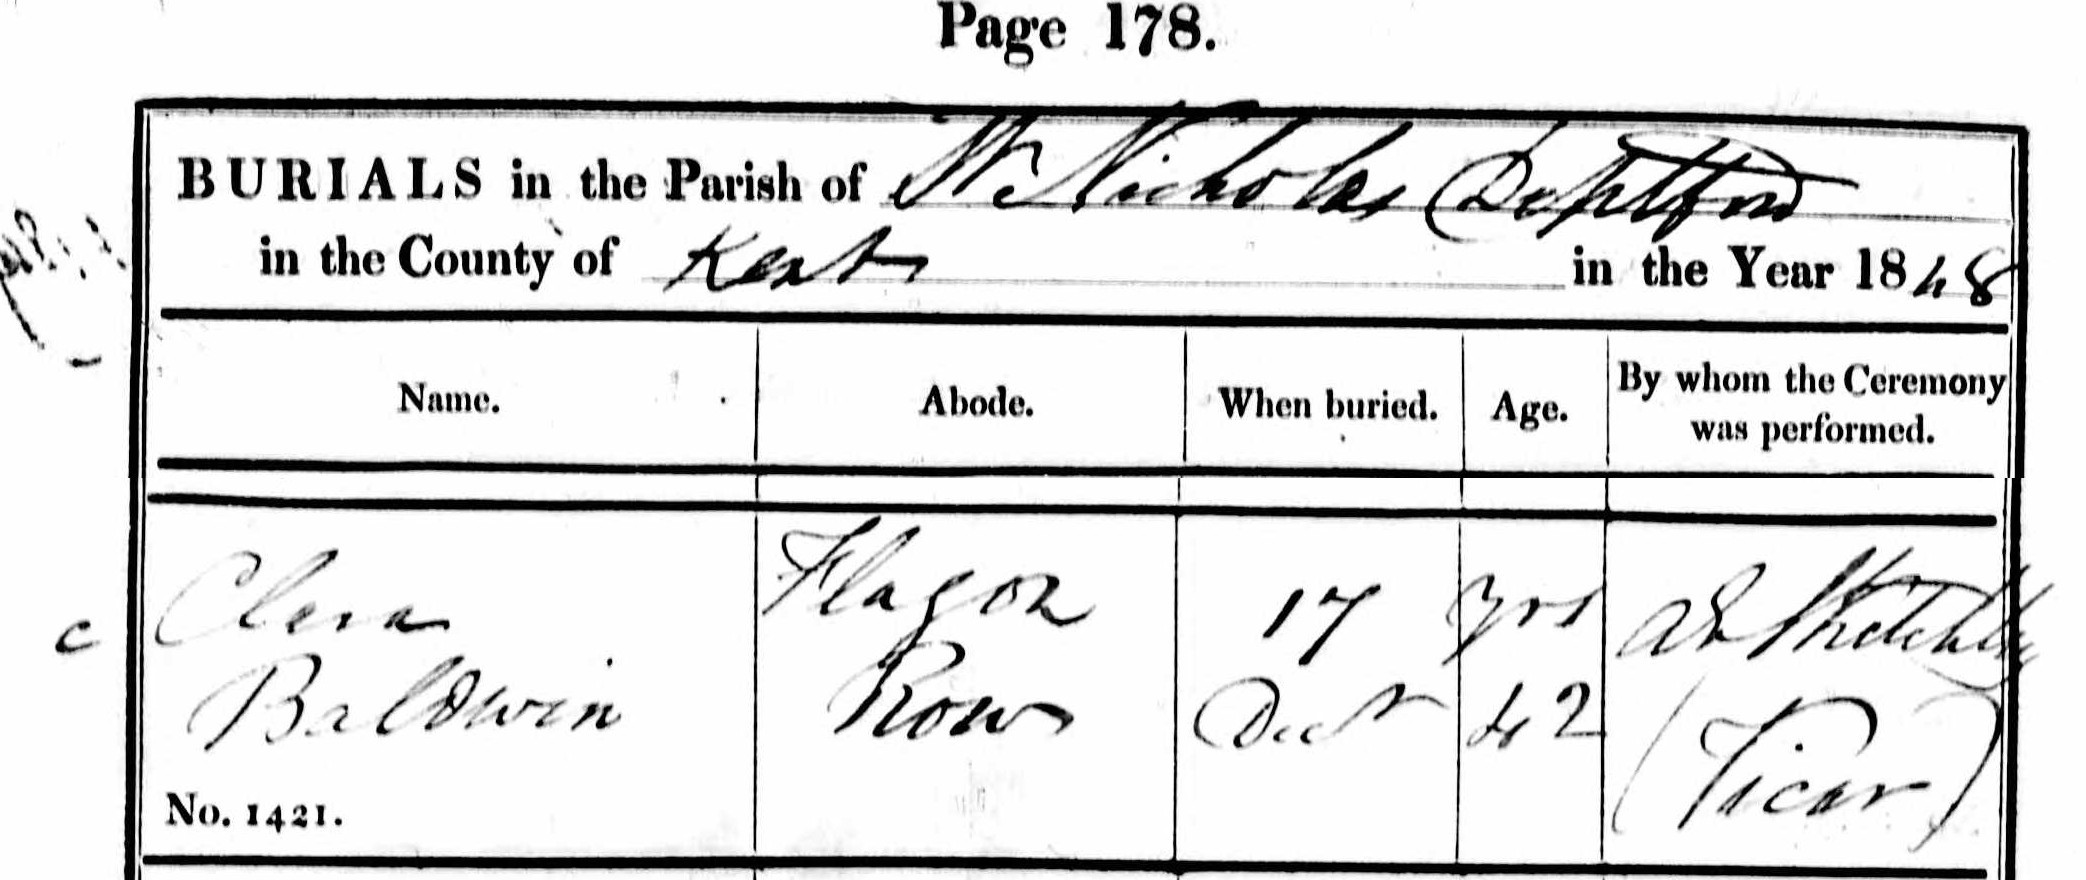 Page 178.
BURIALS in the Parish of St. Nicholas Deptford
in the County of Kent in the Year 1848
Name. Abode. When buried. Age. By whom the Ceremony was performed.
c Clera Flagon 17 yrs AE Sketchley
Baldwin Row Decr 42 (Vicar)
No. 1421.